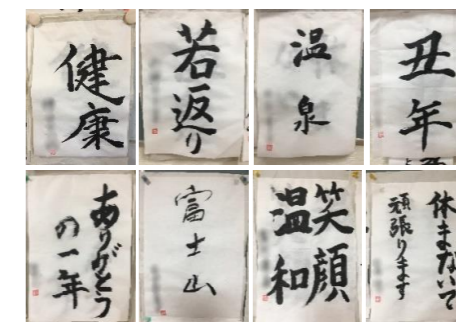 健康
若返り
温泉
丑年
ありがとう
の一年
富士山
笑顔
温和
休まないで
頑張ります